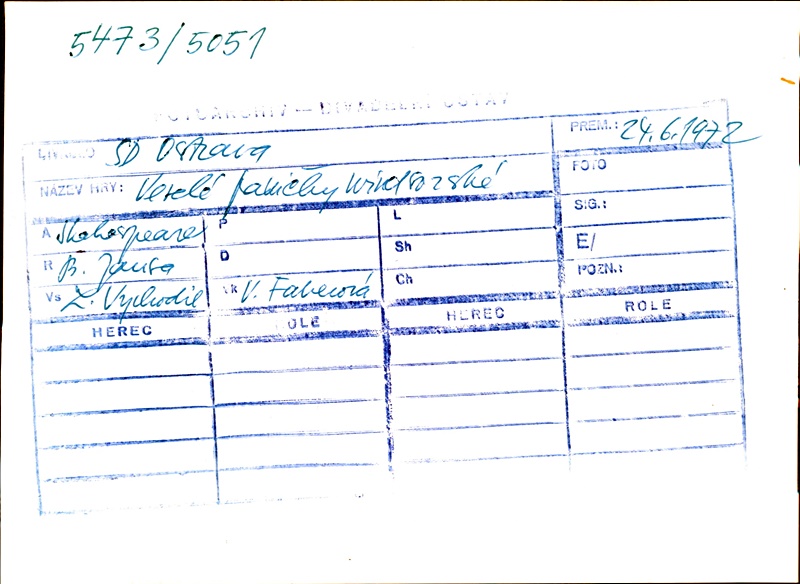 5473/5051
FOTOARCHIV — DIVADELNÍ ÚSTAV
DIVADLO SD Ostrava PREM.: 24.6.1972
NÁZEV HRY: Veselé paničky windsorské FOTO
A Shakespeare P L SIG.:
R B. Jansa D Sh E/
Vs Z. Vychodil Vk V. Faberová Ch POZN.:
HEREC ROLE HEREC ROLE